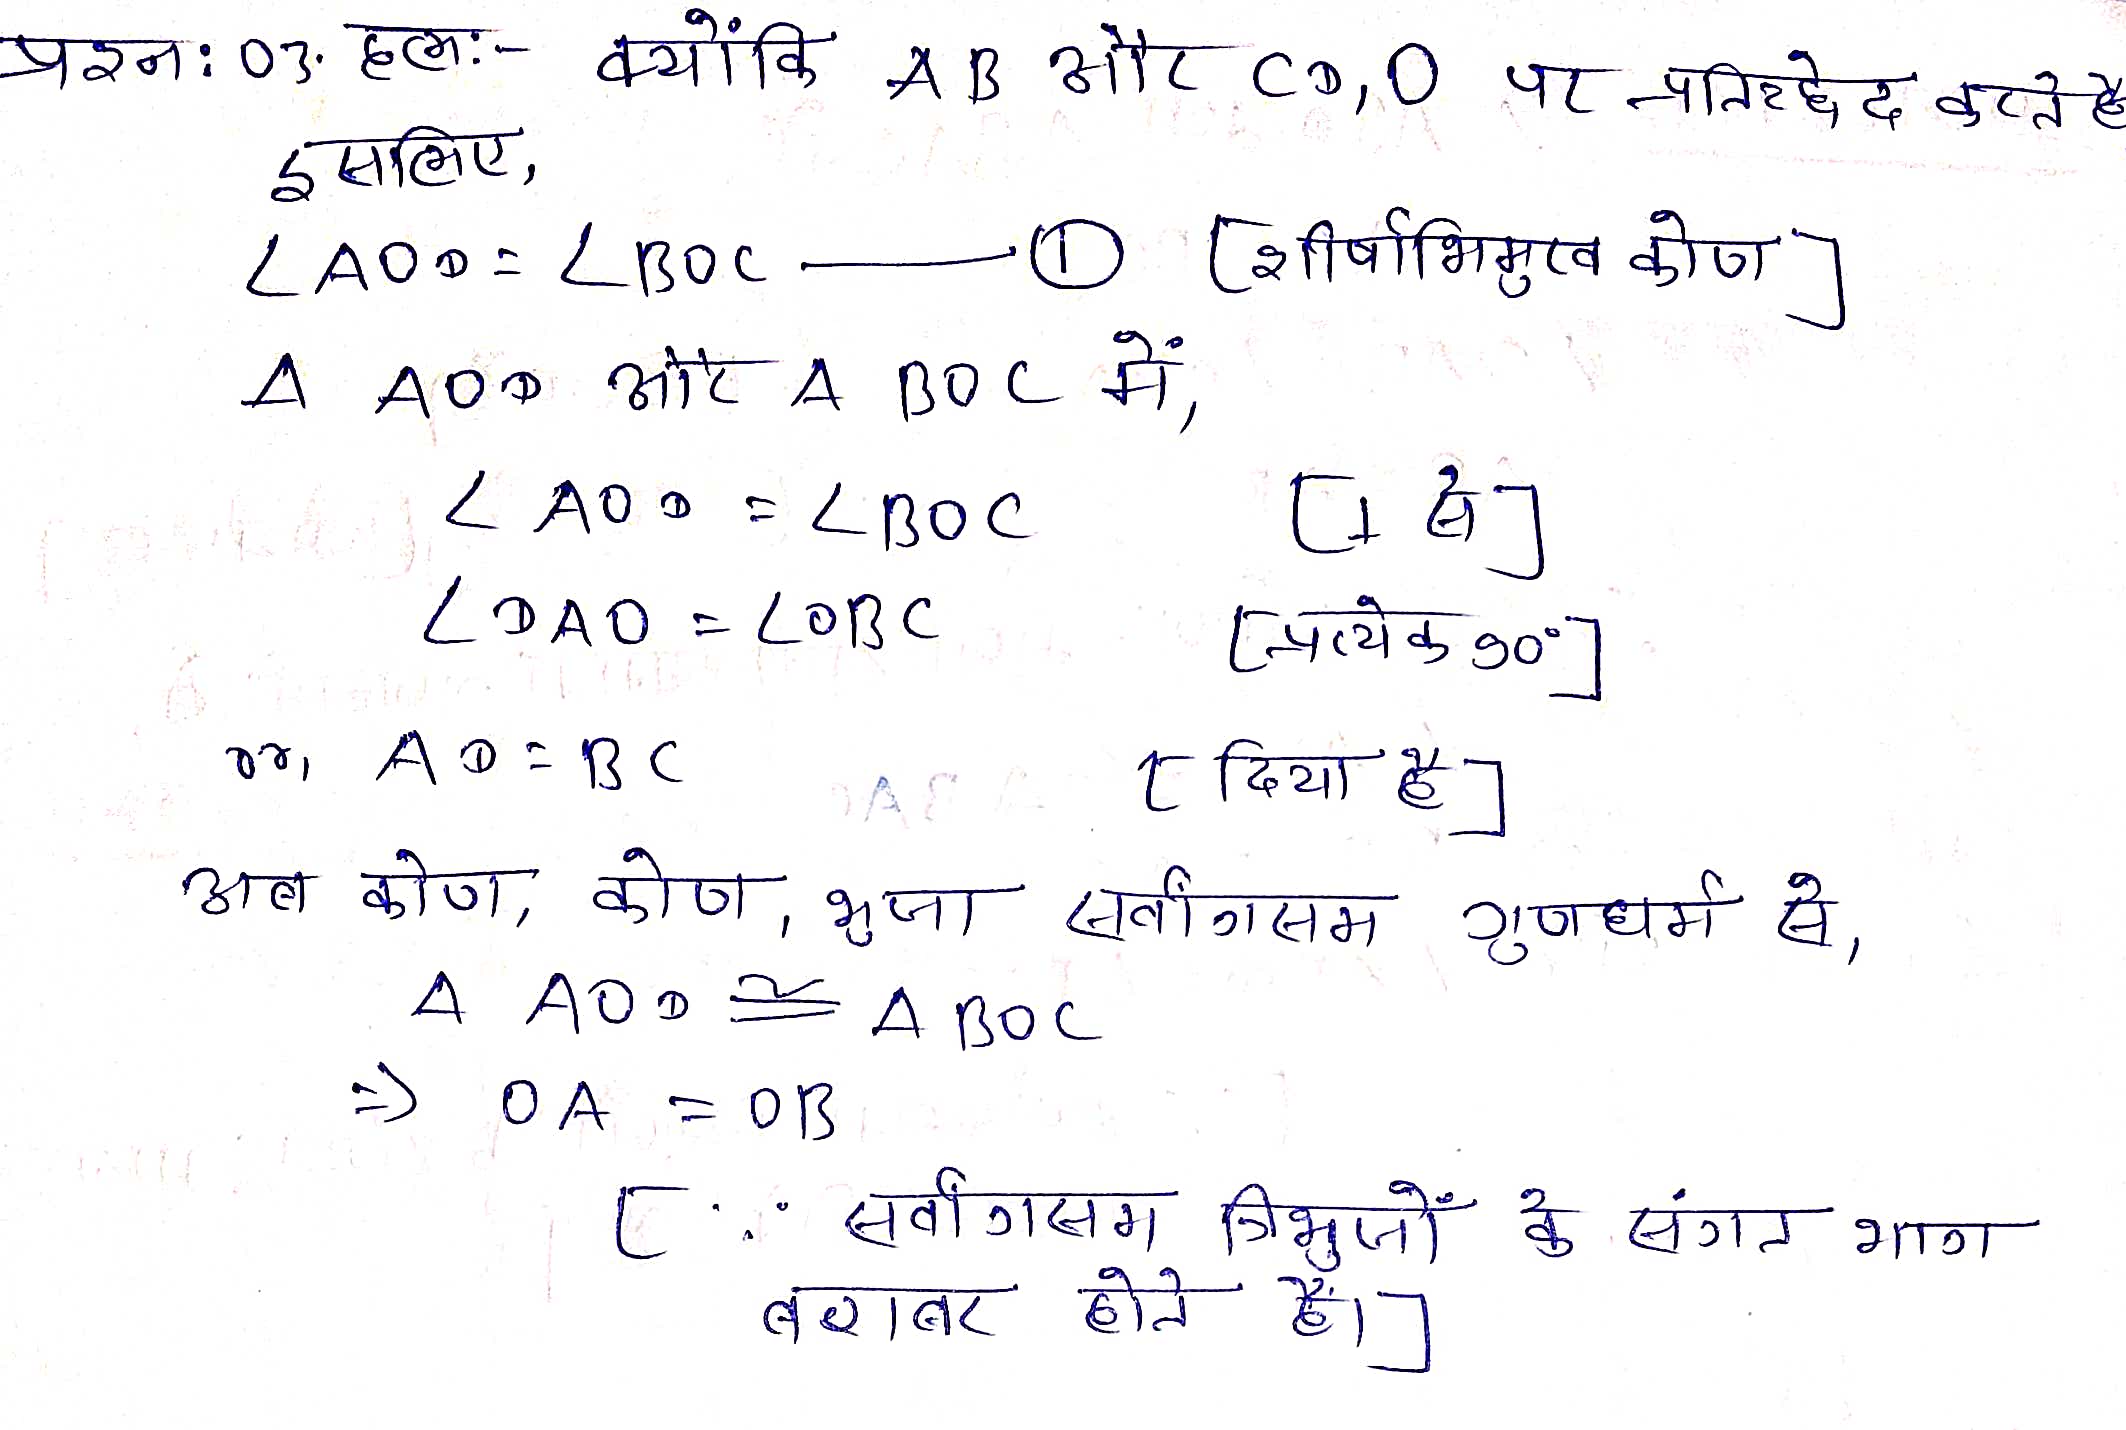 प्रश्न: 03. हल:- क्योंकि AB और CD, O पर प्रतिच्छेद करते है
इसलिए,
∠AOD = ∠BOC —— ① [शीर्षाभिमुख कोण]
Δ AOD और Δ BOC में,
∠AOD = ∠BOC [1 से]
∠DAO = ∠OBC [प्रत्येक 90°]
or, AD = BC [दिया है]
अब कोण, कोण, भुजा सर्वांगसम गुणधर्म से,
Δ AOD ≅ Δ BOC
⇒ OA = OB
[∵ सर्वांगसम त्रिभुजों के संगत भाग
बराबर होते हैं।]